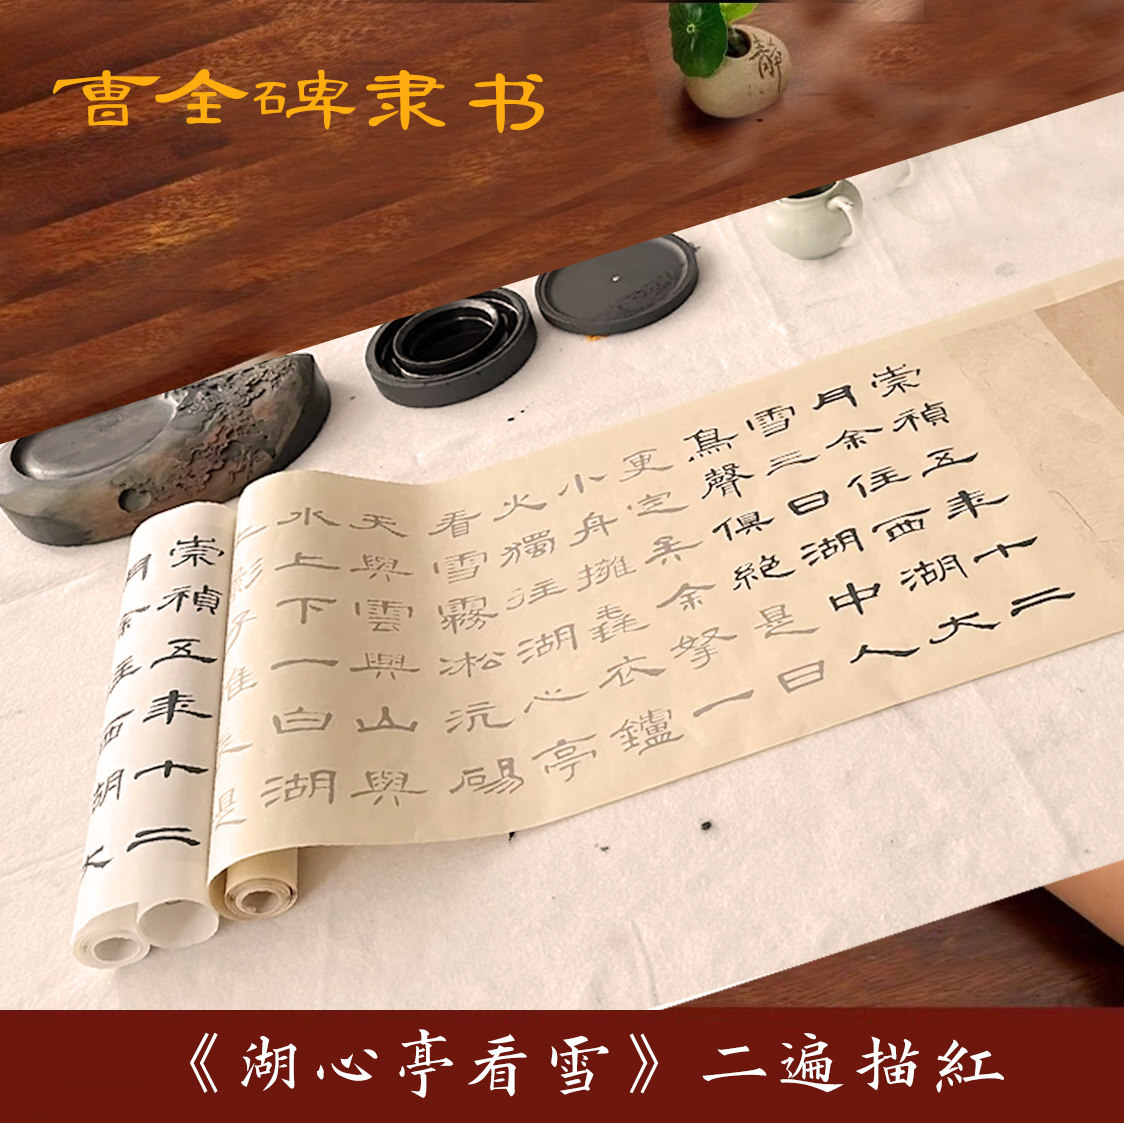 曹全碑隶书
靜
崇禎五年十二
月余住西湖大
雪三日湖中人
鳥聲俱絕是日
更定矣余拏一
小舟擁毳衣鑪
火獨往湖心亭
看雪霧凇沆碭
天與雲與山與
水上下一白湖
上影子惟
崇禎五年十二
月余住西湖大
《湖心亭看雪》二遍描紅